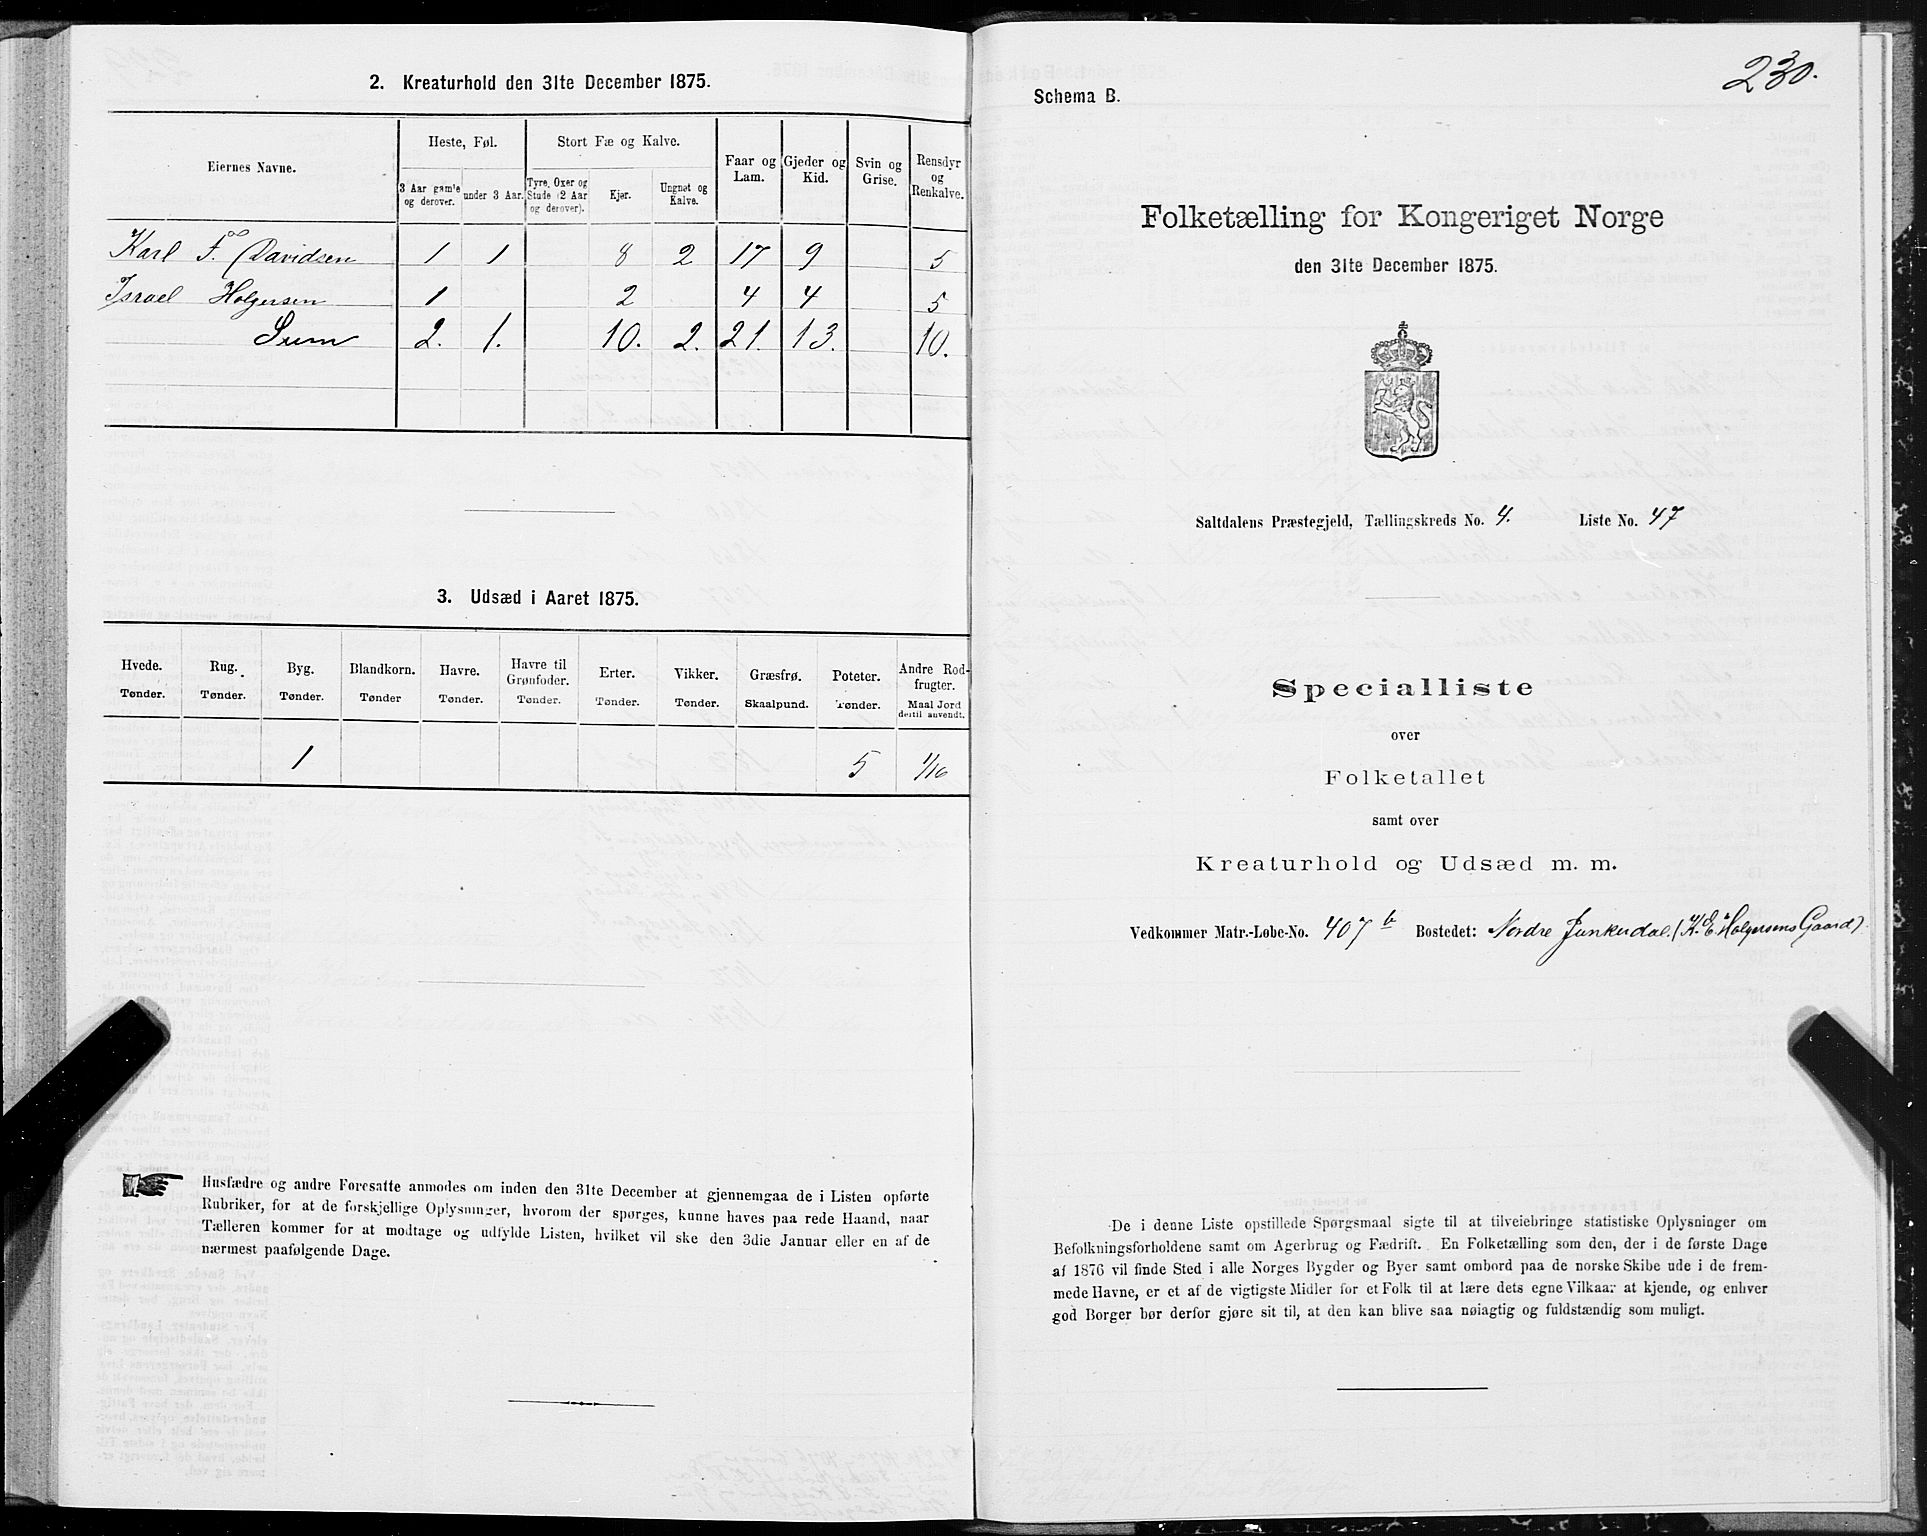 2. Kreaturhold den 31te December 1875.
Eiernes Navne.
Heste, Føl.
Stort Fæ og Kalve.
Faar og Lam.
Gjeder og Kid.
Svin og Grise.
Rensdyr og Renkalve.
3 Aar gamle og derover.
under 3 Aar.
Tyre, Oxer og Stude (2 Aar og derover).
Kjør.
Ungnøt og Kalve.
Karl F. Davidsen 1 1 8 2 17 9 5
Israel Holgersen 1 2 4 4 5
Sum 2. 1. 10. 2. 21. 13. 10.
3. Udsæd i Aaret 1875.
Hvede. Rug. Byg. Blandkorn. Havre. Havre til Grønfoder. Erter. Vikker. Græsfrø. Poteter. Andre Rodfrugter.
Tønder. Tønder. Tønder. Tønder Tønder. Tønder. Tønder. Tønder. Skaalpund. Tønder. Maal Jord dertil anvendt.
1 5 1/16
Husfædre og andre Foresatte anmodes om inden den 31te December at gjennemgaa de i Listen opførte
Rubriker, for at de forskjellige Oplysninger, hvorom der spørges, kunne haves paa rede Haand, naar
Tælleren kommer for at modtage og udfylde Listen, hvilket vil ske den 3die Januar eller en af de
nærmest paafølgende Dage.
230.
Schema B.
Folketælling for Kongeriget Norge
den 31te December 1875.
Saltdalens Præstegjeld, Tællingskreds No. 4. Liste No. 47
Specialliste
over
Folketallet
samt over
Kreaturhold og Udsæd m. m.
Vedkommer Matr.-Løbe-No. 407 b Bostedet: Nordre Junkerdal. (K. E. Holgersens Gaard).
De i denne Liste opstillede Spørgsmaal sigte til at tilveiebringe statistiske Oplysninger om
Befolkningsforholdene samt om Agerbrug og Fædrift. En Folketælling som den, der i de første Dage
af 1876 vil finde Sted i alle Norges Bygder og Byer samt ombord paa de norske Skibe ude i de frem-
mede Havne, er et af de vigtigste Midler for et Folk til at lære dets egne Vilkaar at kjende, og enhver
god Borger bør derfor gjøre sit til, at den kan blive saa nøiagtig og fuldstændig som muligt.